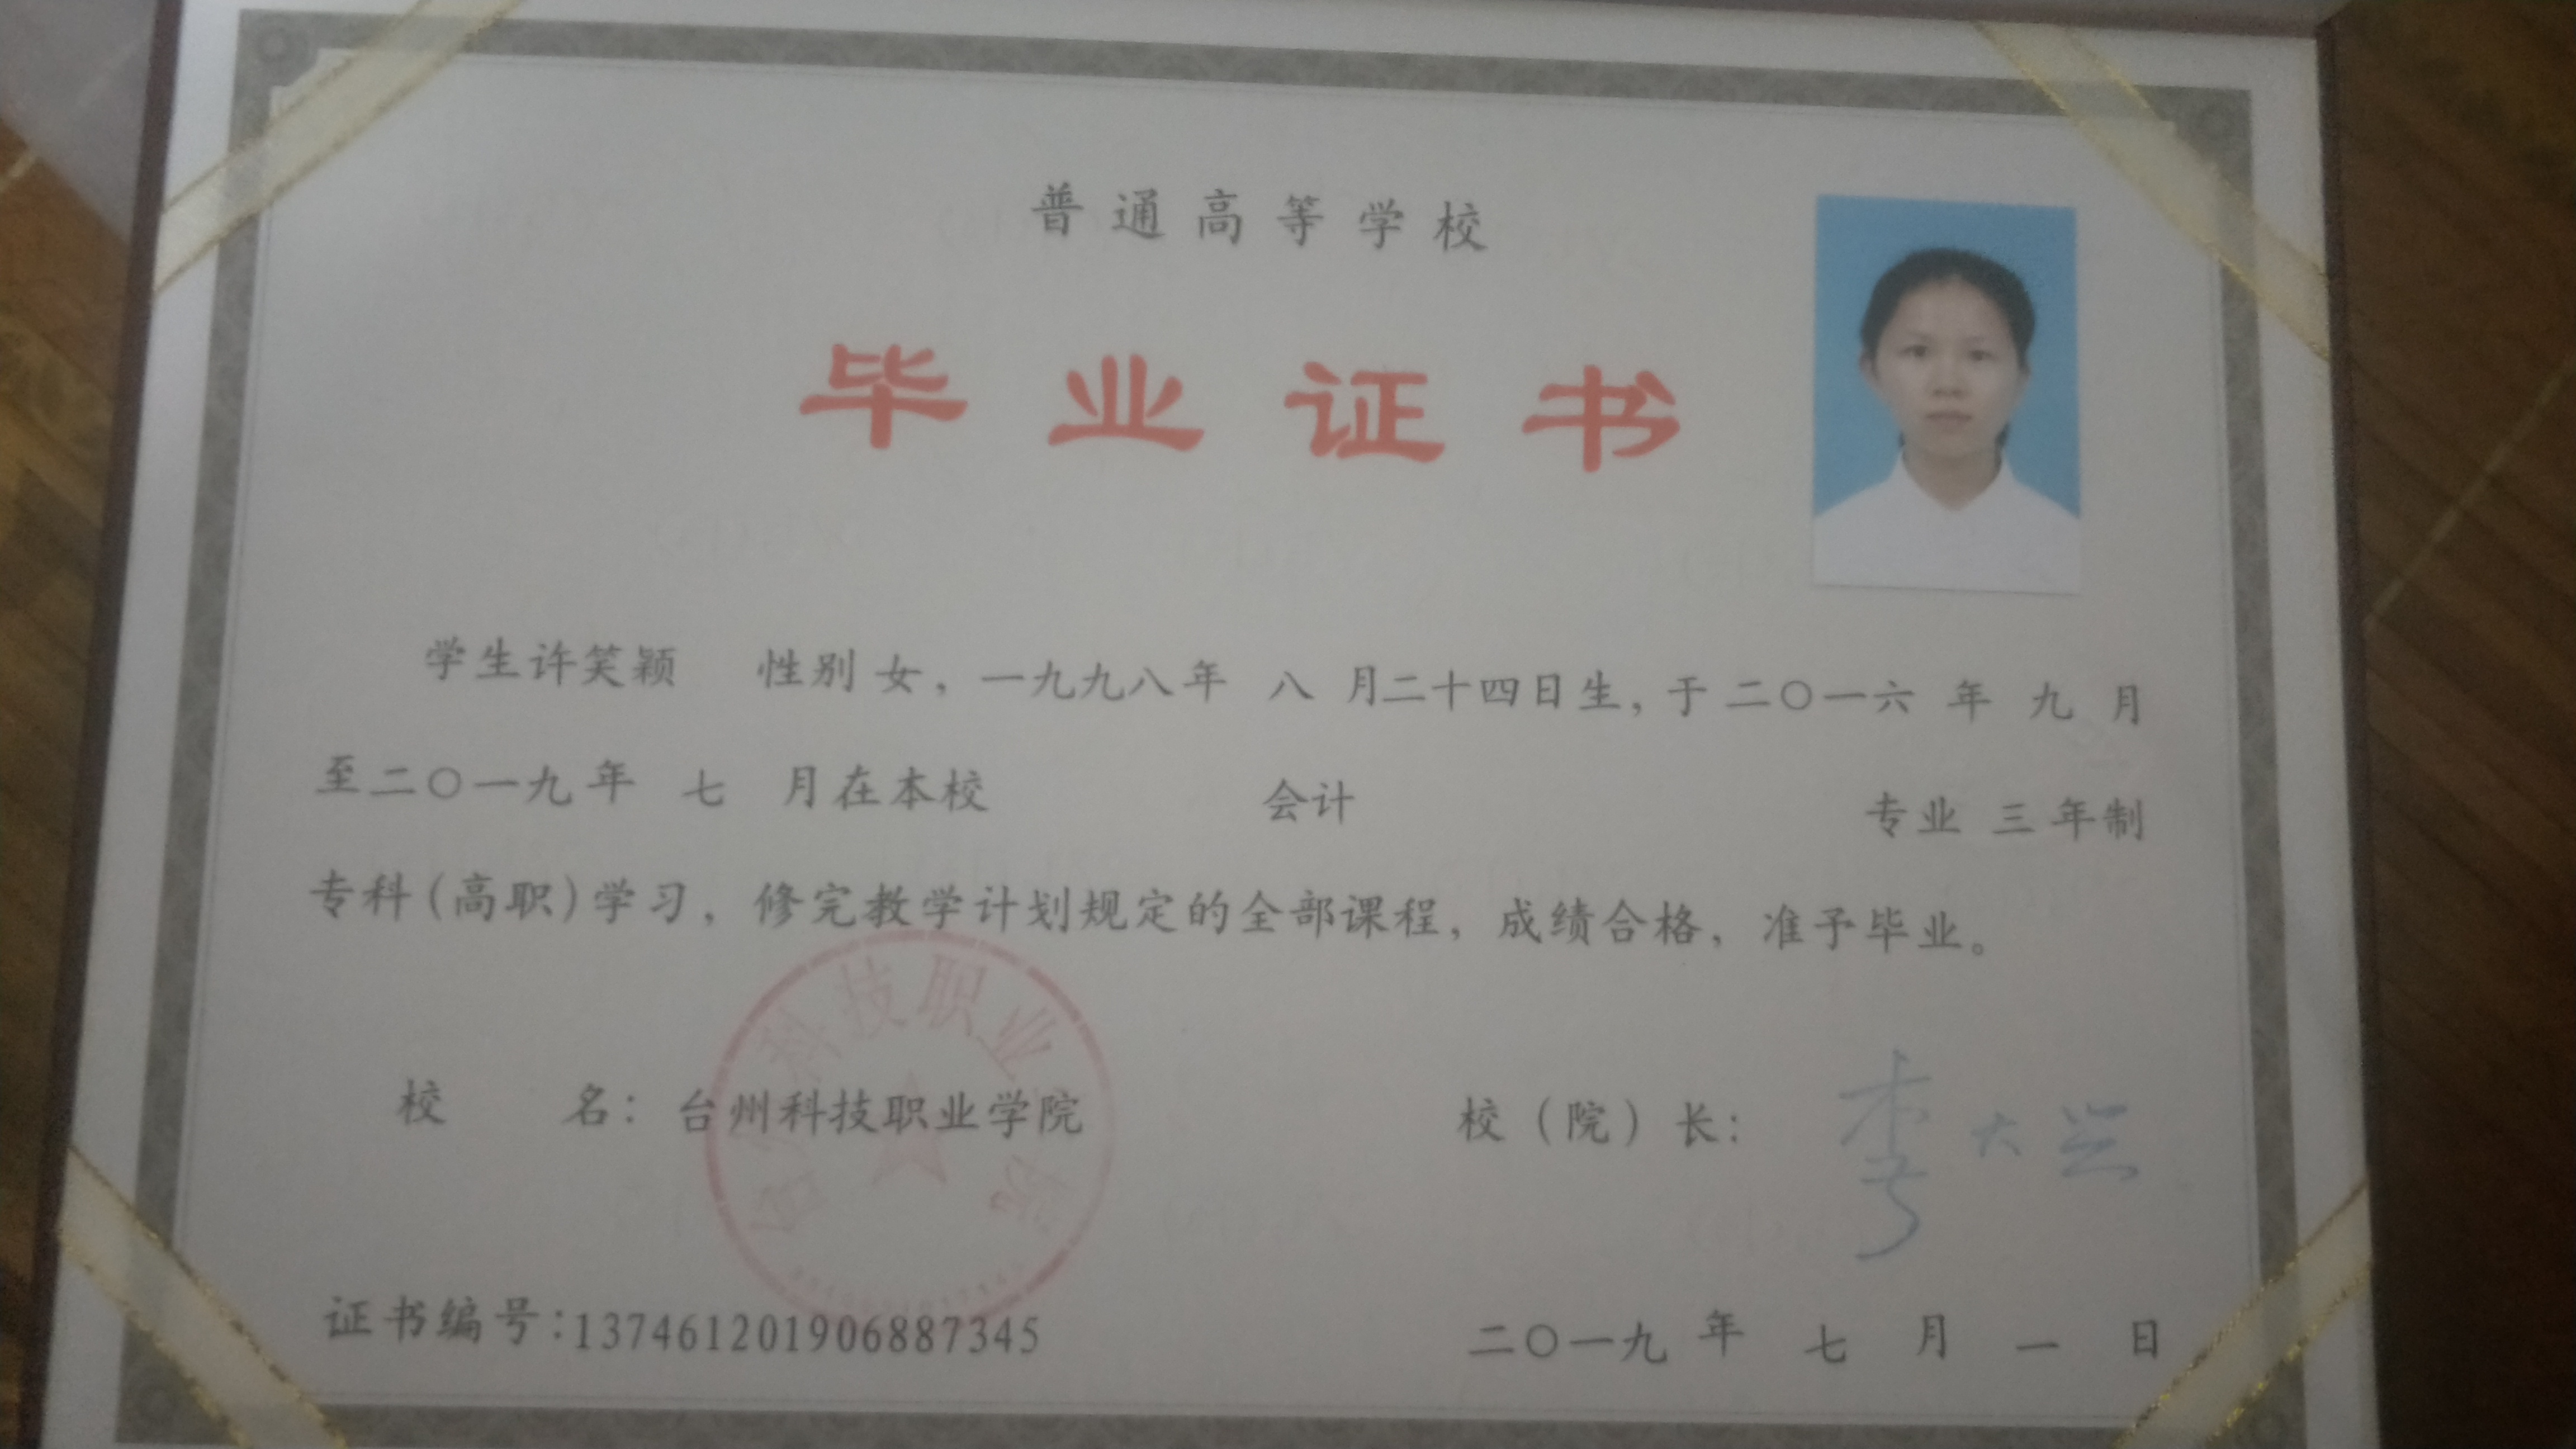 普通高等学校
毕业证书
学生许笑颖 性别女，一九九八年 八 月二十四日生，于二〇一六 年 九 月
至二〇一九年 七 月在本校 会计 专业 三 年制
专科(高职)学习，修完教学计划规定的全部课程，成绩合格，准予毕业。
台州科技职业学院
校 名：台州科技职业学院 校（院）长：李大
证书编号：137461201906887345 二〇一九 年 七 月 一 日